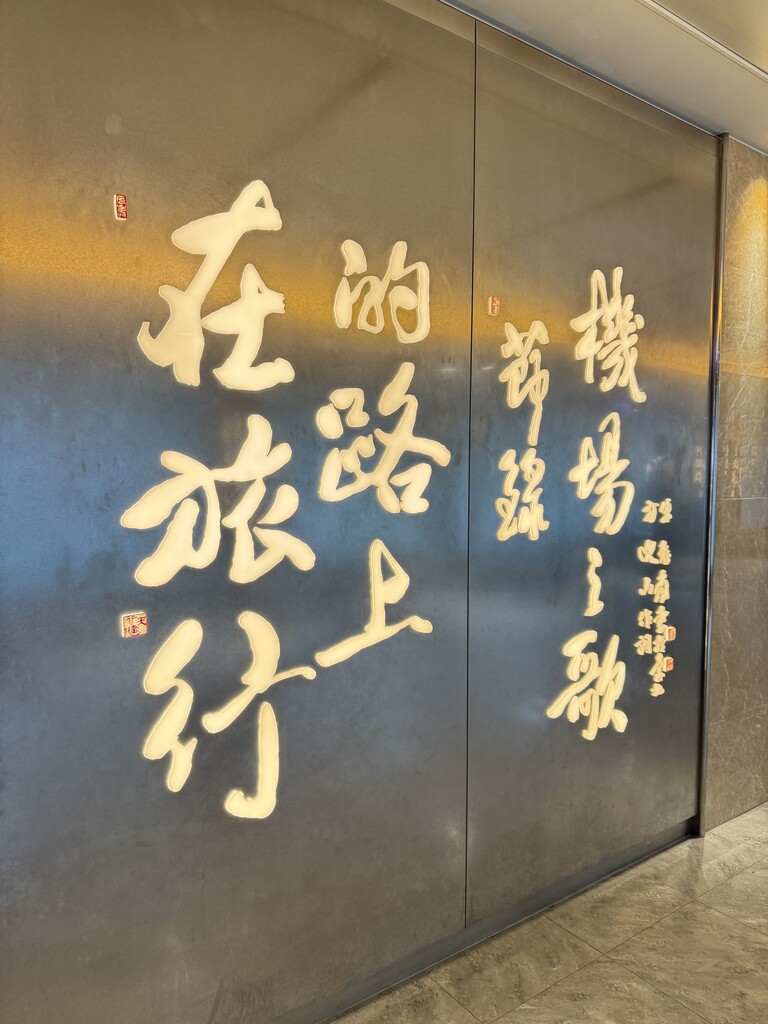 在旅行
的路上
機場之歌
節錄
天行健